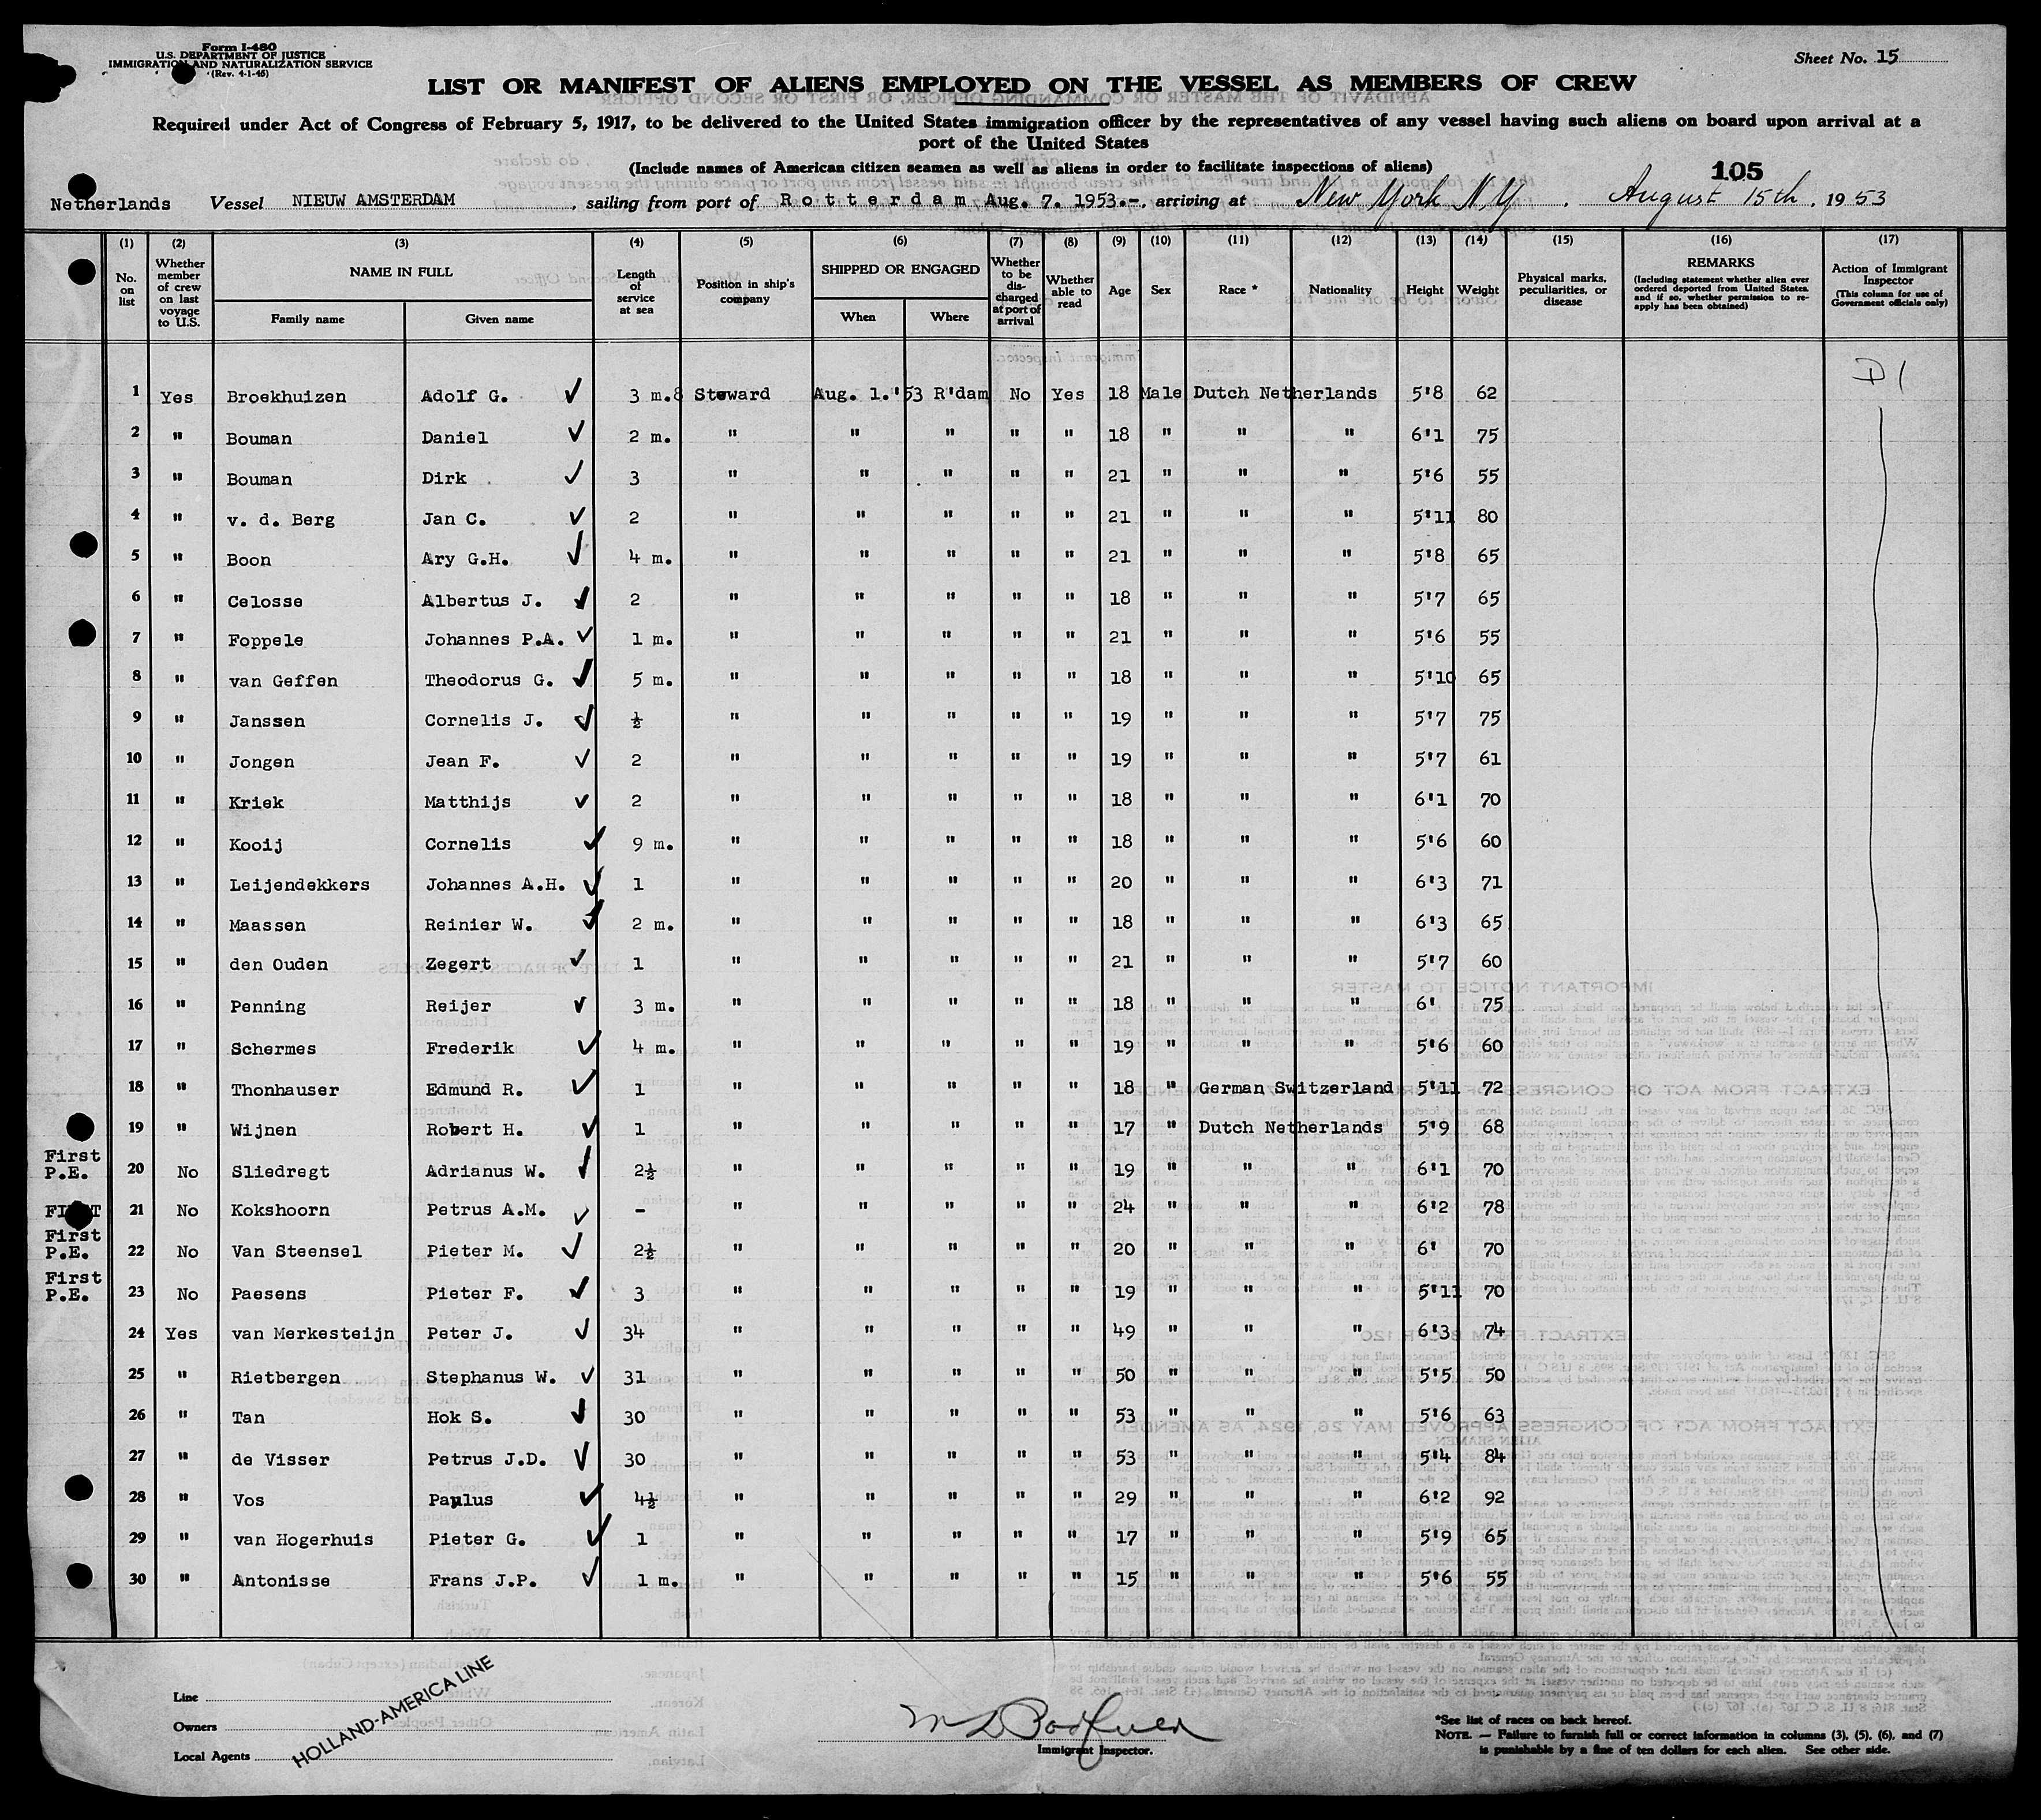 Form I-480
U.S. DEPARTMENT OF JUSTICE
IMMIGRATION AND NATURALIZATION SERVICE
(Rev. 4-1-45)
Sheet No. 15
LIST OR MANIFEST OF ALIENS EMPLOYED ON THE VESSEL AS MEMBERS OF CREW
Required under Act of Congress of February 5, 1917, to be delivered to the United States immigration officer by the representatives of any vessel having such aliens on board upon arrival at a
port of the United States
(Include names of American citizen seamen as well as aliens in order to facilitate inspections of aliens)
105
Netherlands Vessel NIEUW AMSTERDAM, sailing from port of Rotterdam Aug. 7. 1953.-, arriving at New York N.Y. August 15th, 1953
(1) (2) (3) (4) (5) (6) (7) (8) (9) (10) (11) (12) (13) (14) (15) (16) (17)
No. on list
Whether member of crew on last voyage to U.S.
NAME IN FULL
Family name
Given name
Length of service at sea
Position in ship's company
SHIPPED OR ENGAGED
When
Where
Whether to be discharged at port of arrival
Whether able to read
Age
Sex
Race *
Nationality
Height
Weight
Physical marks, peculiarities, or disease
REMARKS
(Including statement whether alien ever ordered deported from United States, and if so, whether permission to reapply has been obtained)
Action of Immigrant Inspector
(This column for use of Government officials only)
D1
1 Yes Broekhuizen Adolf G. ✓ 3 m.8 Steward Aug. 1.'53 R'dam No Yes 18 Male Dutch Netherlands 5'8 62
2 " Bouman Daniel ✓ 2 m. " " " " " 18 " " " 6'1 75
3 " Bouman Dirk ✓ 3 " " " " " 21 " " " 5'6 55
4 " v. d. Berg Jan C. ✓ 2 " " " " " 21 " " " 5'11 80
5 " Boon Ary G.H. ✓ 4 m. " " " " " 21 " " " 5'8 65
6 " Celosse Albertus J. ✓ 2 " " " " " 18 " " " 5'7 65
7 " Foppele Johannes P.A. ✓ 1 m. " " " " " 21 " " " 5'6 55
8 " van Geffen Theodorus G. ✓ 5 m. " " " " " 18 " " " 5'10 65
9 " Janssen Cornelis J. ✓ ½ " " " " " 19 " " " 5'7 75
10 " Jongen Jean F. ✓ 2 " " " " " 19 " " " 5'7 61
11 " Kriek Matthijs ✓ 2 " " " " " 18 " " " 6'1 70
12 " Kooij Cornelis ✓ 9 m. " " " " " 18 " " " 5'6 60
13 " Leijendekkers Johannes A.H. ✓ 1 " " " " " 20 " " " 6'3 71
14 " Maassen Reinier W. ✓ 2 m. " " " " " 18 " " " 6'3 65
15 " den Ouden Zegert ✓ 1 " " " " " 21 " " " 5'7 60
16 " Penning Reijer ✓ 3 m. " " " " " 18 " " " 6' 75
17 " Schermes Frederik ✓ 4 m. " " " " " 19 " " " 5'6 60
18 " Thonhauser Edmund R. ✓ 1 " " " " " 18 " German Switzerland 5'11 72
19 " Wijnen Robert H. ✓ 1 " " " " " 17 " Dutch Netherlands 5'9 68
First P.E. 20 No Sliedregt Adrianus W. ✓ 2½ " " " " " 19 " " " 6'1 70
FIRST 21 No Kokshoorn Petrus A.M. ✓ - " " " " " 24 " " " 6'2 78
First P.E. 22 No Van Steensel Pieter M. ✓ 2½ " " " " " 20 " " " 6' 70
First P.E. 23 No Paesens Pieter F. ✓ 3 " " " " " 19 " " " 5'11 70
24 Yes van Merkesteijn Peter J. ✓ 34 " " " " " 49 " " " 6'3 74
25 " Rietbergen Stephanus W. ✓ 31 " " " " " 50 " " " 5'5 50
26 " Tan Hok S. ✓ 30 " " " " " 53 " " " 5'6 63
27 " de Visser Petrus J.D. ✓ 30 " " " " " 53 " " " 5'4 84
28 " Vos Paulus ✓ 4½ " " " " " 29 " " " 6'2 92
29 " van Hogerhuis Pieter G. ✓ 1 " " " " " 17 " " " 5'9 65
30 " Antonisse Frans J.P. ✓ 1 m. " " " " " 15 " " " 5'6 55
Line
Owners
Local Agents
HOLLAND-AMERICA LINE
Immigrant Inspector.
*See list of races on back hereof.
NOTE. — Failure to furnish full or correct information in columns (3), (5), (6), and (7)
is punishable by a fine of ten dollars for each alien. See other side.